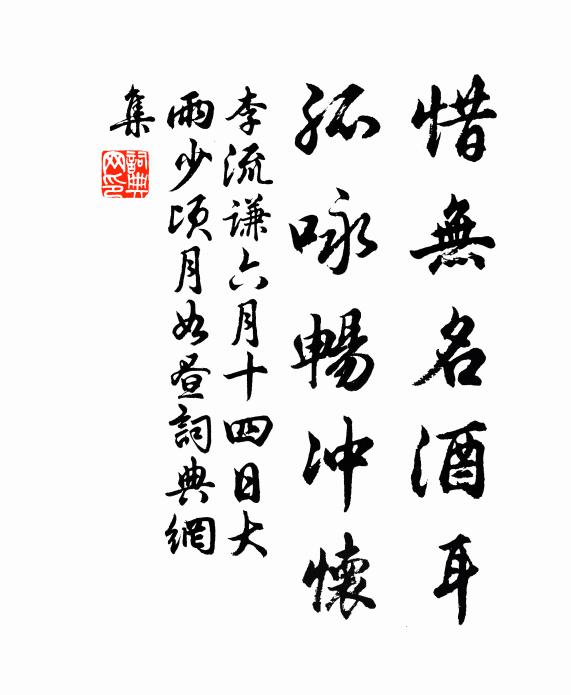 惜無名酒耳
孤咏暢冲懷
李流謙六月十四日大
雨少頃月如晝詞典網
集
詞典
网印